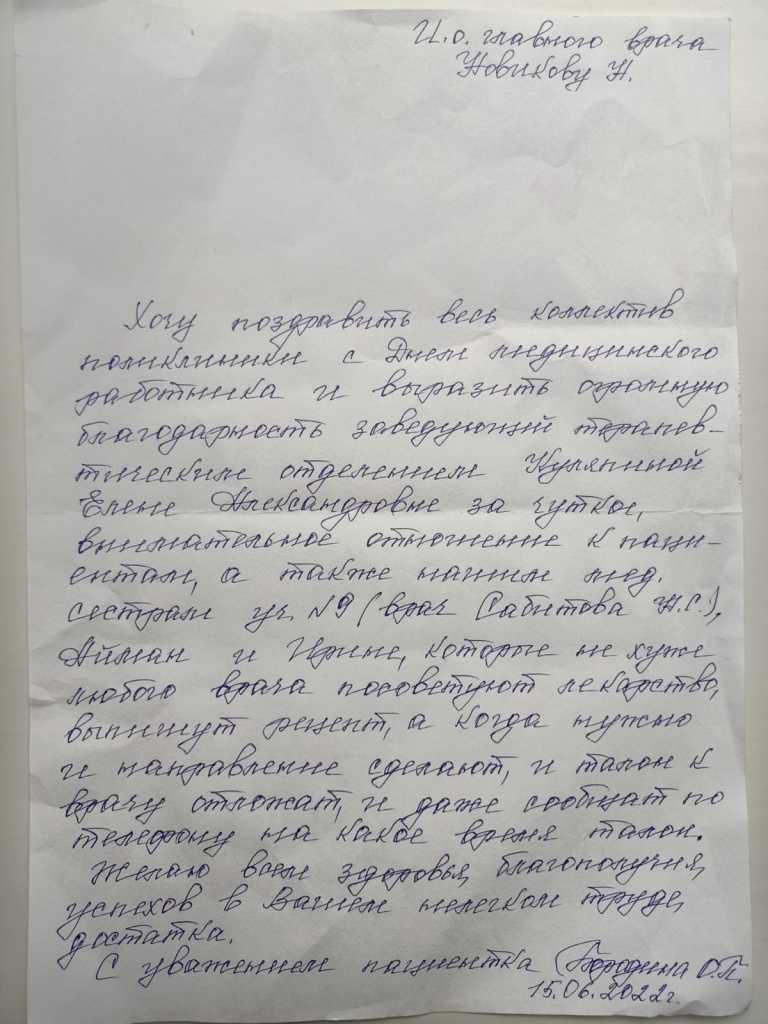 И.о. главного врача
Новикову Н.
Хочу поздравить весь коллектив
поликлиники с Днем медицинского
работника и выразить огромную
благодарность заведующий терапев-
тическим отделением Куляниной
Елене Александровне за чуткое,
внимательное отношение к паци-
ентам, а также нашим мед.
сестрам уч. №9 (врач Сабитова Ж.С.),
Айман и Ирине, которые не хуже
любого врача посоветуют лекарство,
выпишут рецепт, а когда нужно
и направление сделают, и талон к
врачу отложат, и даже сообщат по
телефону на какое время талон.
Желаю всем здоровья, благополучия,
успехов в Вашем нелегком труде,
достатка.
С уважением пациентка Бородина О.П.
15.06.2022г.